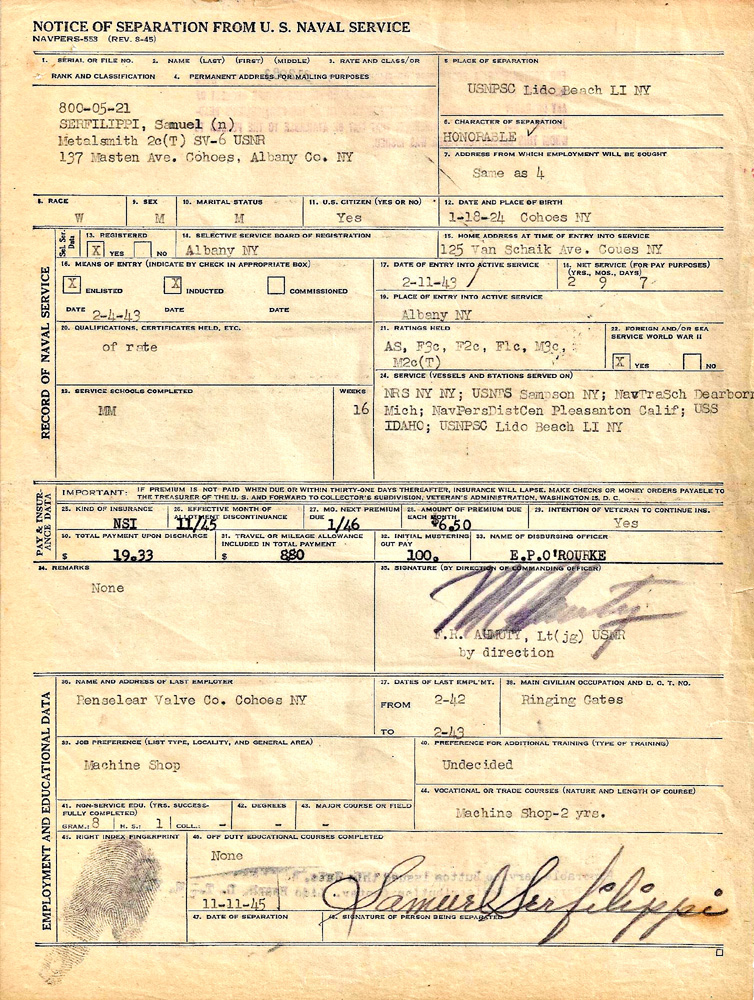 NOTICE OF SEPARATION FROM U. S. NAVAL SERVICE
NAVPERS-553 (REV. 8-45)
1. SERIAL OR FILE NO. 2. NAME (LAST) (FIRST) (MIDDLE) 3. RATE AND CLASS/OR
RANK AND CLASSIFICATION 4. PERMANENT ADDRESS FOR MAILING PURPOSES
800-05-21
SERFILIPPI, Samuel (n)
Metalsmith 2c(T) SV-6 USNR
137 Masten Ave. Cohoes, Albany Co. NY
5 PLACE OF SEPARATION
USNPSC Lido Beach LI NY
6. CHARACTER OF SEPARATION
HONORABLE ✓
7. ADDRESS FROM WHICH EMPLOYMENT WILL BE SOUGHT
Same as 4
8. RACE
W
9. SEX
M
10. MARITAL STATUS
M
11. U.S. CITIZEN (YES OR NO)
Yes
12. DATE AND PLACE OF BIRTH
1-18-24 Cohoes NY
Sel. Ser. Data
13. REGISTERED
X YES NO
14. SELECTIVE SERVICE BOARD OF REGISTRATION
Albany NY
15. HOME ADDRESS AT TIME OF ENTRY INTO SERVICE
125 Van Schaik Ave. Coues NY
RECORD OF NAVAL SERVICE
16. MEANS OF ENTRY (INDICATE BY CHECK IN APPROPRIATE BOX)
X ENLISTED X INDUCTED COMMISSIONED
DATE 2-4-43 DATE DATE
17. DATE OF ENTRY INTO ACTIVE SERVICE
2-11-43
18. NET SERVICE (FOR PAY PURPOSES)
(YRS., MOS., DAYS)
2 9 7
19. PLACE OF ENTRY INTO ACTIVE SERVICE
Albany NY
20. QUALIFICATIONS, CERTIFICATES HELD, ETC.
of rate
21. RATINGS HELD
AS, F3c, F2c, F1c, M3c,
M2c(T)
22. FOREIGN AND/OR SEA
SERVICE WORLD WAR II
X YES NO
23. SERVICE SCHOOLS COMPLETED
WEEKS
MM 16
24. SERVICE (VESSELS AND STATIONS SERVED ON)
NRS NY NY; USNTS Sampson NY; NavTraSch Dearborn
Mich; NavPersDistCen Pleasanton Calif; USS
IDAHO; USNPSC Lido Beach LI NY
PAY & INSURANCE DATA
IMPORTANT: IF PREMIUM IS NOT PAID WHEN DUE OR WITHIN THIRTY-ONE DAYS THEREAFTER, INSURANCE WILL LAPSE. MAKE CHECKS OR MONEY ORDERS PAYABLE TO
THE TREASURER OF THE U. S. AND FORWARD TO COLLECTOR'S SUBDIVISION, VETERAN'S ADMINISTRATION, WASHINGTON 25, D. C.
25. KIND OF INSURANCE
NSI
26. EFFECTIVE MONTH OF
ALLOTMENT DISCONTINUANCE
11/45
27. MO. NEXT PREMIUM
DUE
1/46
28. AMOUNT OF PREMIUM DUE
EACH MONTH
$6.50
29. INTENTION OF VETERAN TO CONTINUE INS.
Yes
30. TOTAL PAYMENT UPON DISCHARGE
$ 19.33
31. TRAVEL OR MILEAGE ALLOWANCE
INCLUDED IN TOTAL PAYMENT
$ 880
32. INITIAL MUSTERING
OUT PAY
100.
33. NAME OF DISBURSING OFFICER
E.P.O'ROURKE
34. REMARKS
None
35. SIGNATURE (BY DIRECTION OF COMMANDING OFFICER)
F.R. AHMUTY, Lt(jg) USNR
by direction
EMPLOYMENT AND EDUCATIONAL DATA
36. NAME AND ADDRESS OF LAST EMPLOYER
Renselear Valve Co. Cohoes NY
37. DATES OF LAST EMPL'MT.
FROM 2-42
TO 2-43
38. MAIN CIVILIAN OCCUPATION AND D. O. T. NO.
Ringing Gates
39. JOB PREFERENCE (LIST TYPE, LOCALITY, AND GENERAL AREA)
Machine Shop
40. PREFERENCE FOR ADDITIONAL TRAINING (TYPE OF TRAINING)
Undecided
41. NON-SERVICE EDU. (YRS. SUCCESS-
FULLY COMPLETED)
GRAM.: 8 H. S.: 1 COLL.: -
42. DEGREES
-
43. MAJOR COURSE OR FIELD
-
44. VOCATIONAL OR TRADE COURSES (NATURE AND LENGTH OF COURSE)
Machine Shop-2 yrs.
45. RIGHT INDEX FINGERPRINT
46. OFF DUTY EDUCATIONAL COURSES COMPLETED
None
11-11-45
47. DATE OF SEPARATION
Samuel Serfilippi
48. SIGNATURE OF PERSON BEING SEPARATED